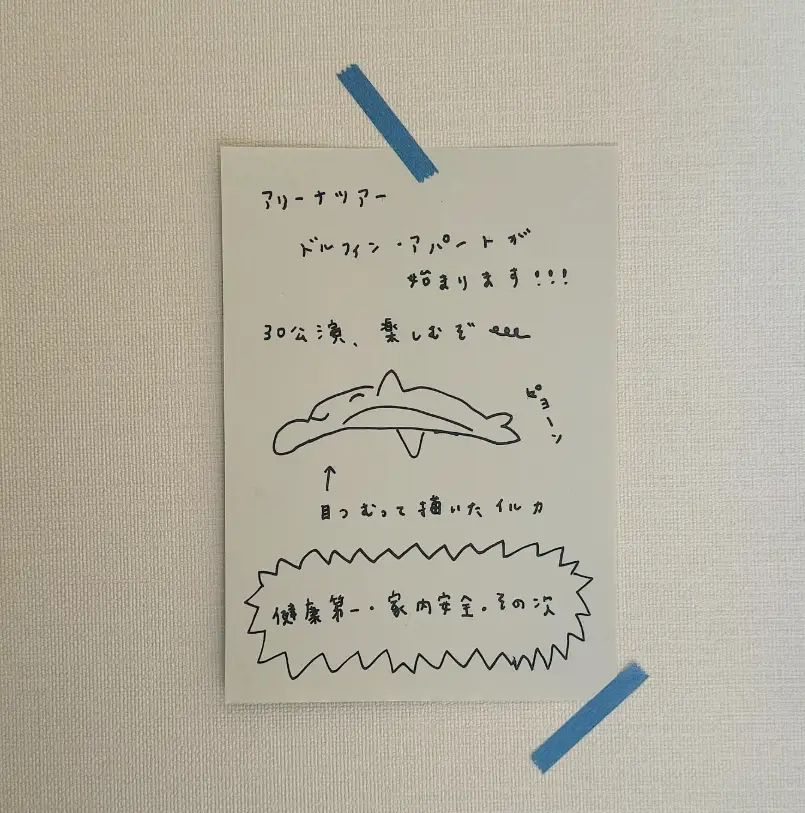 アリーナツアー
ドルフィン・アパートが
始まります!!!
30公演、楽しむぞ
ピョーン
↑
目つむって描いたイルカ
健康第一・家内安全。その次